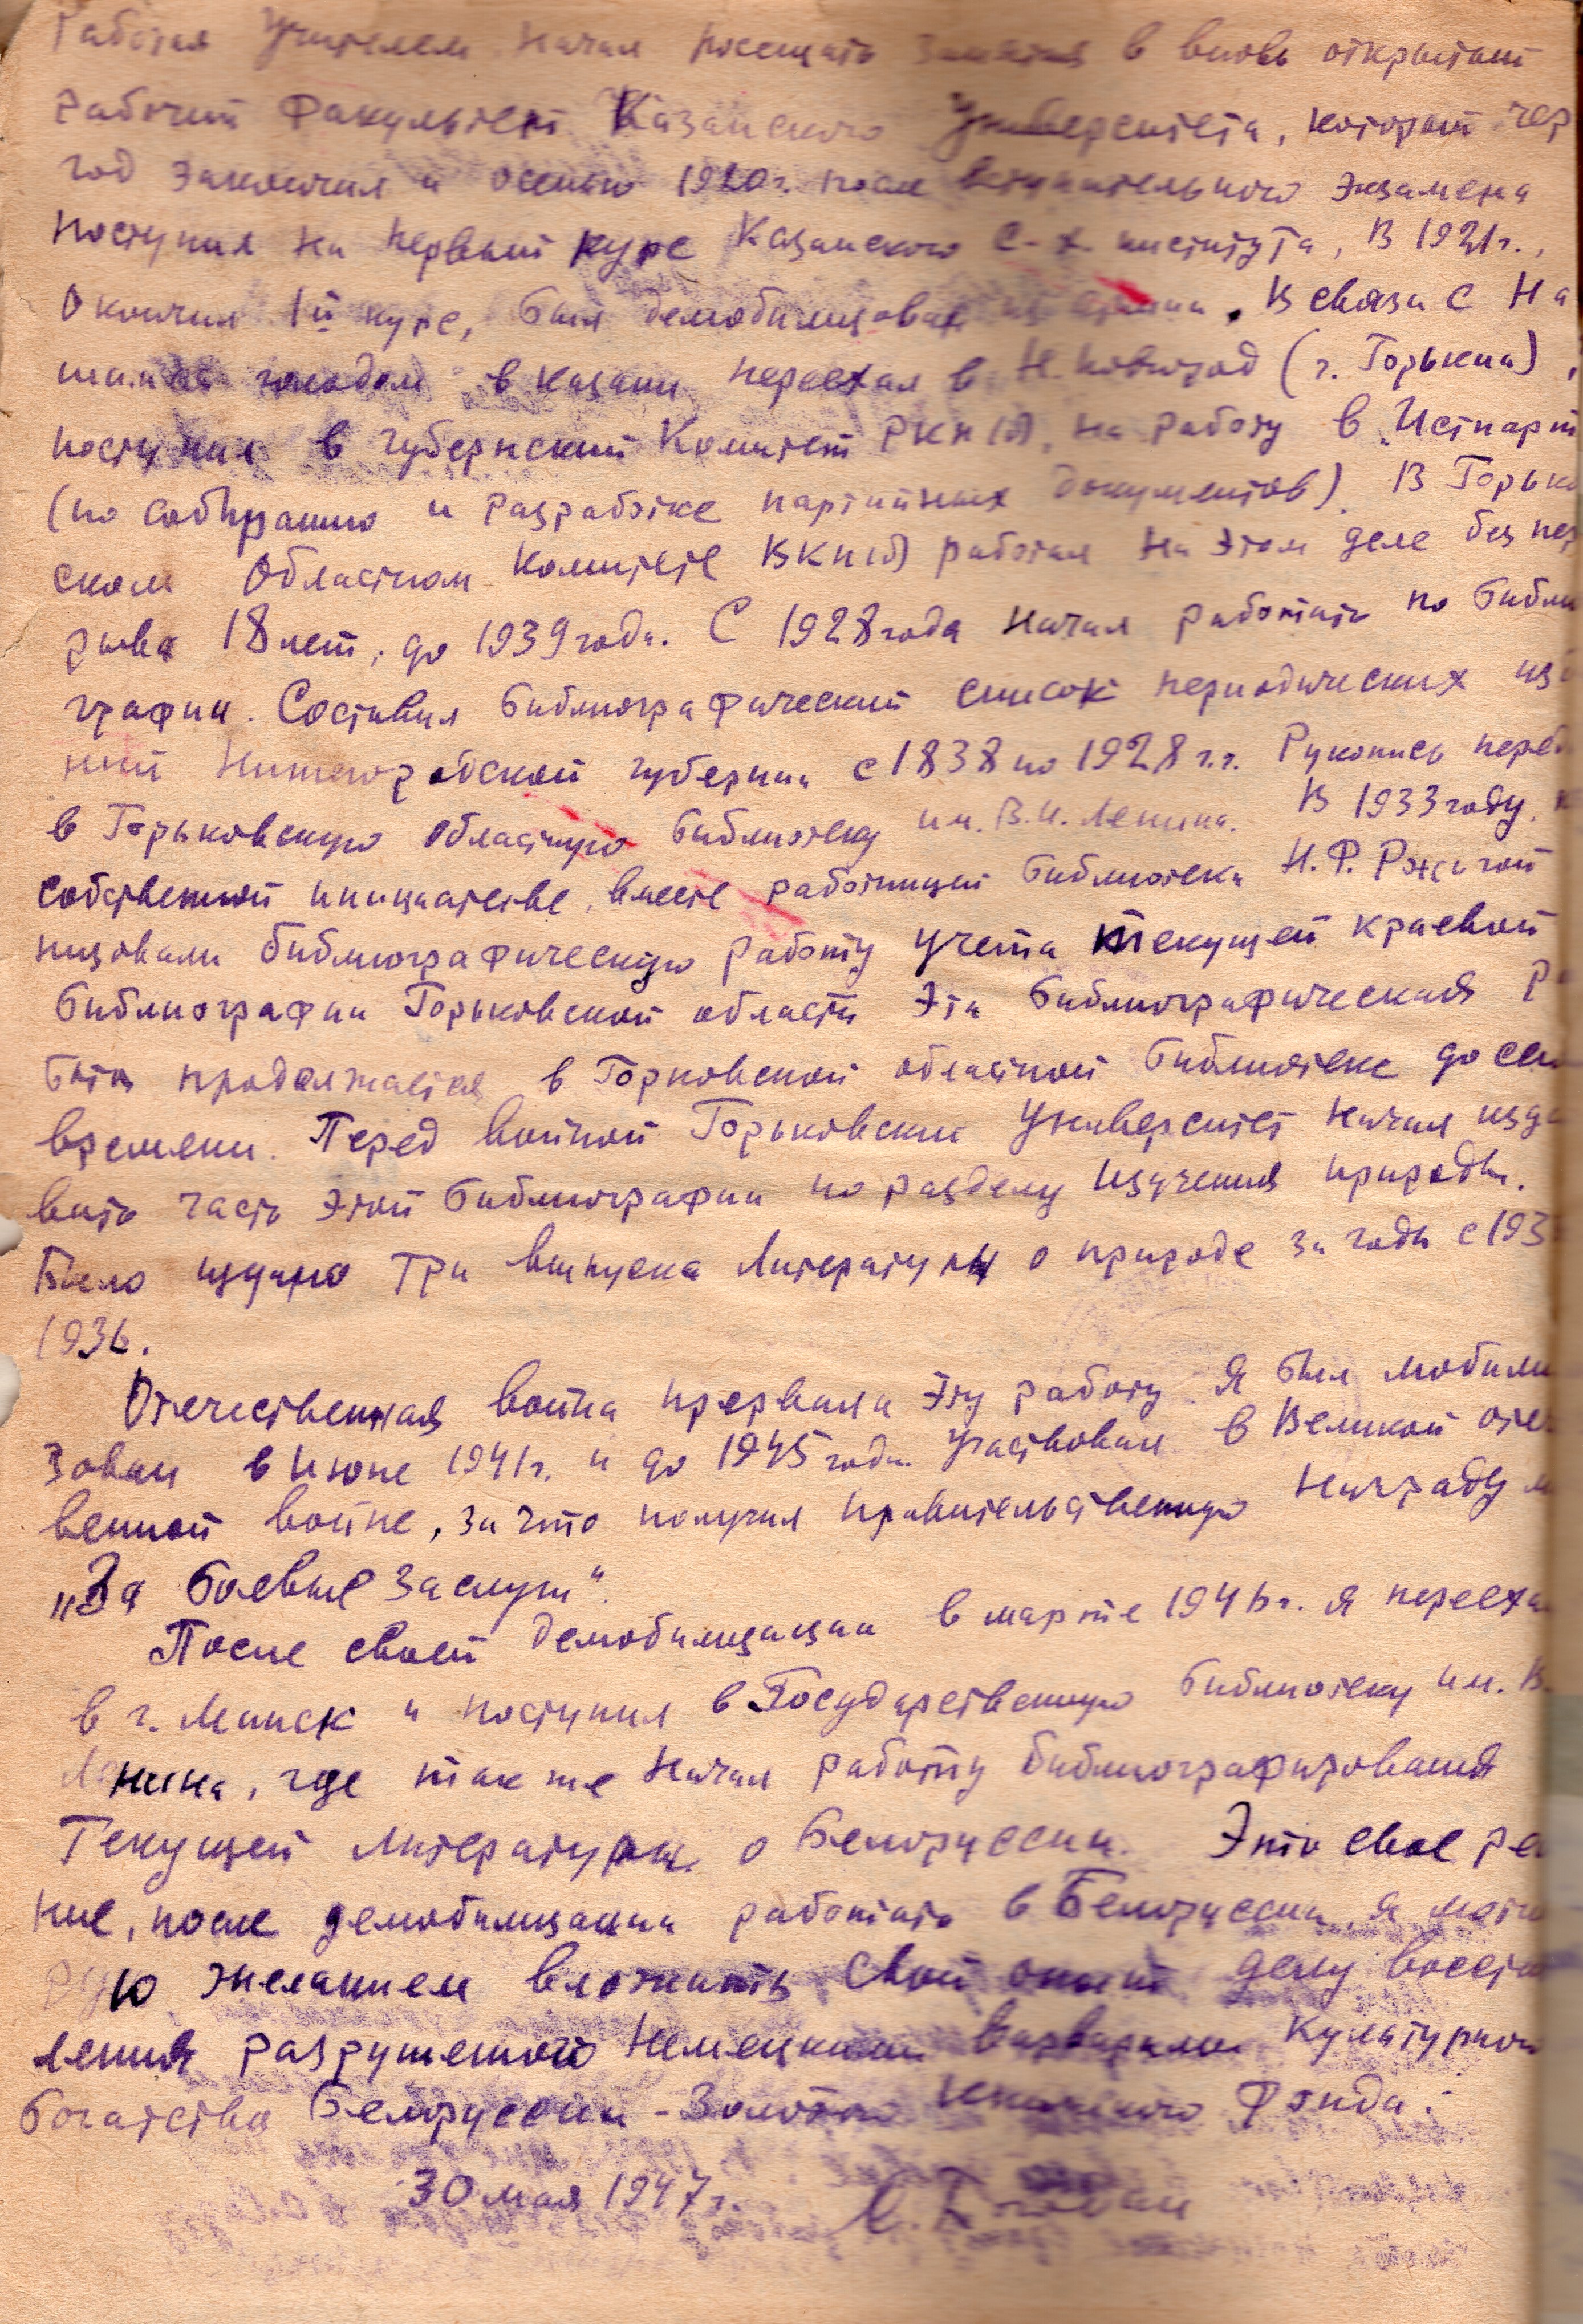 Работая Учителем начал посещать занятия в вновь открытый
рабочий факультет Казанского Университета, который чер
год закончил и осенью 1920 г. после вступительного экзамена
поступил на первый курс Казанского С-х. института, В 1921 г.,
Окончил 1й курс, был демобилизован из армии. В связи с на
голодом в Казани переехал в Н. Новгород (г. Горький),
поступил в Губернский Комитет РКП(б) на работу в Истпарт
(по собиранию и разработке партийных документов). В Горьк
ском Областном Комитете ВКП(б) работал на этом деле без пер
рыва 18 лет, до 1939 года. С 1928 года начал работать по библи
графии. Составил библиографический список периодических изд
ний Нижегородской губернии с 1838 по 1928 г.г. Рукопись перед
в Горьковскую областную библиотеку им. В.И. Ленина. В 1933 году,
собственной инициативе, вместе работницей библиотеки Н.Ф.
низовали библиографическую работу учета текущей краевой
библиографии Горьковской области Эта библиографическая р
бота продолжается в Горковской областной библиотеке до сего
времени. Перед войной Горьковский Университет начал изда
вать часть этой библиографии по разделу изучения природы.
Было издано три выпуска Литературы о природе за годы с 193
1936.
Отечественная война прервала эту работу. Я был мобили
зован в Июне 1941 г. и до 1945 года участвовал в Великой отеч
венной войне, за что получил правительственную награду м
„За боевые заслуги“.
После своей демобилизации в марте 1946 г. я переехал
в г. Минск и поступил в Государственную библиотеку им. В.
Ленина, где также начал работу библиографирования
Текущей литературы о Белоруссии. Это свое ре
ние, после демобилизации работать в Белоруссии, я моти
рую желанием вложить свой опыт делу восста
ления разрушенного немецкими варварами культурного
богатства Белоруссии - Золотого книжного Фонда.
30 мая 1947 г.